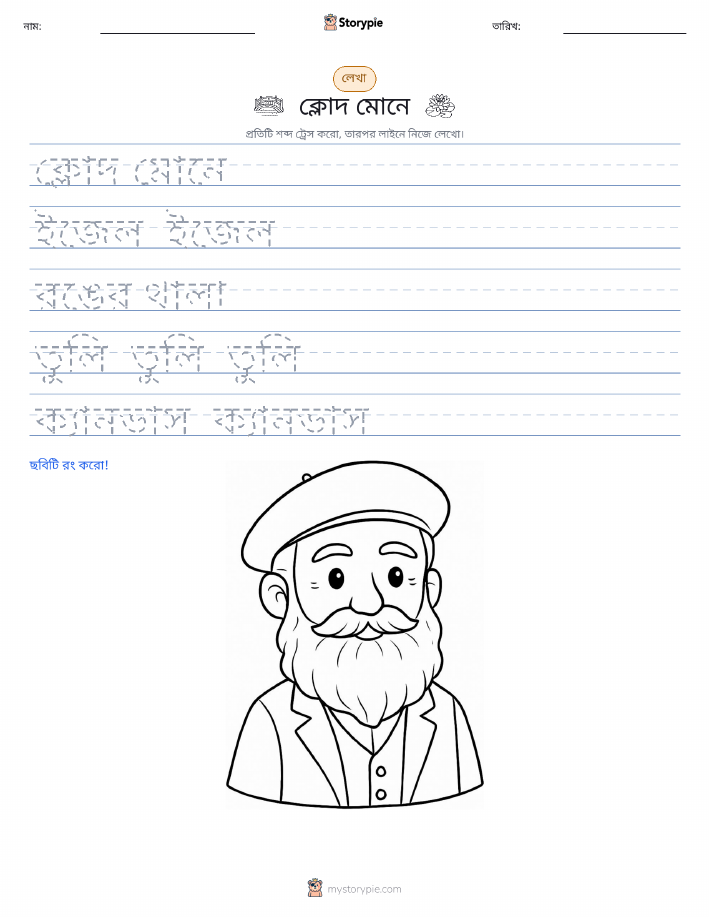 নাম:
Storypie
তারিখ:
লেখা
ক্লোদ মোনে
প্রতিটি শব্দ ট্রেস করো, তারপর লাইনে নিজে লেখো।
ক্লোদ মোনে
ইজেল ইজেল
রঙের থালা
তুলি তুলি তুলি
ক্যানভাস ক্যানভাস
ছবিটি রং করো!
mystorypie.com